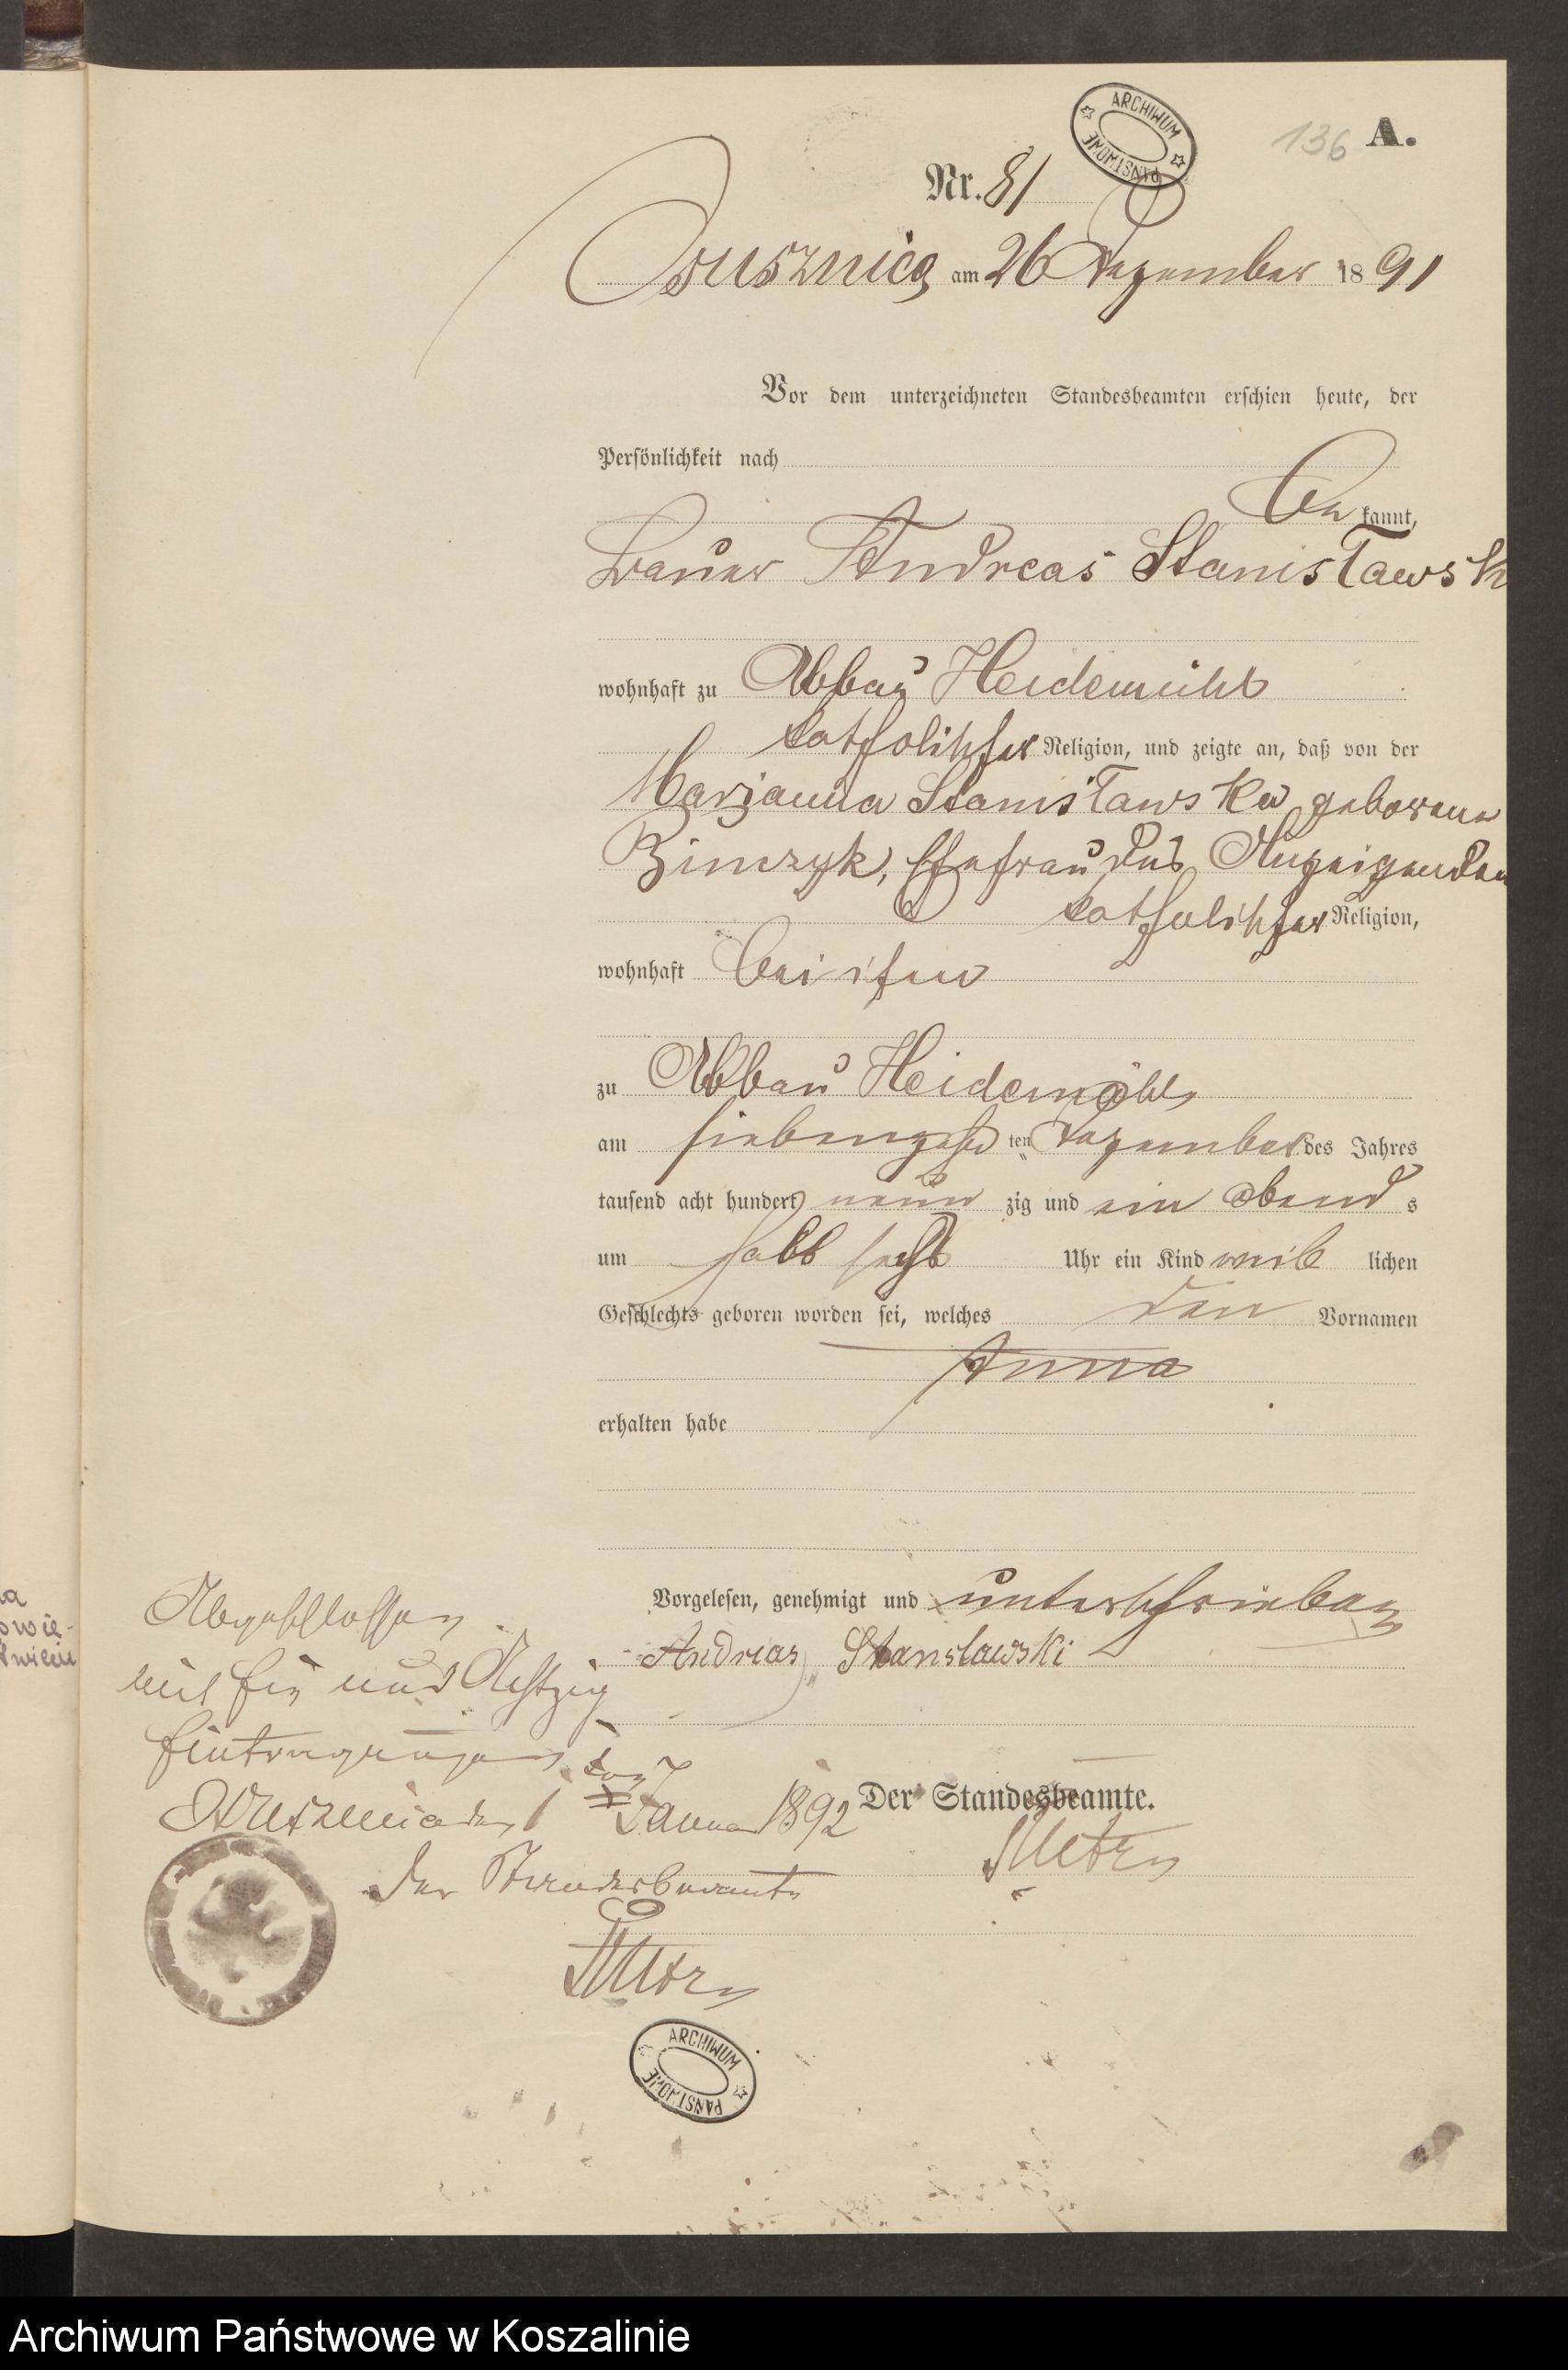 136 A.
ARCHIWUM PAŃSTWOWE
Nr. 81
Osusznica am 26 Dezember 1891
Vor dem unterzeichneten Standesbeamten erschien heute, der
Persönlichkeit nach
be kannt,
Bauer Andreas Stanisławsk
wohnhaft zu Abbau Heidemühl
katholischer Religion, und zeigte an, daß von der
Marjanna Stanisławska geborene
Binczyk, Ehefrau des Anzeigenden
katholischer Religion,
wohnhaft bei ihm
zu Abbau Heidemühl
am siebenzehn ten Dezember des Jahres
tausend acht hundert neun zig und ein abend s
um halb sechs Uhr ein Kind weib lichen
Geschlechts geboren worden sei, welches den Vornamen
Anna
erhalten habe
Vorgelesen, genehmigt und unterschrieben
Andreas Stanslawski
Der Standesbeamte.
Abgeschlossen
mit ein und Achtzig
Eintragungen
Januar 1892
Der Standesbeamte
ARCHIWUM PAŃSTWOWE
Archiwum Państwowe w Koszalinie